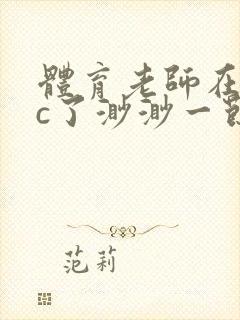 體育老師在
c了渺渺一
范莉